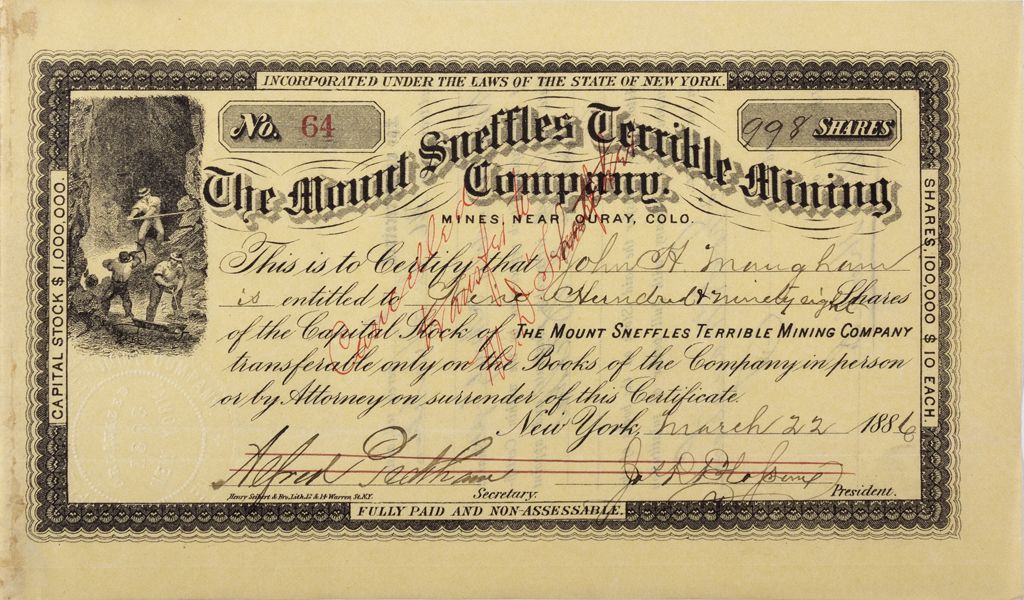 INCORPORATED UNDER THE LAWS OF THE STATE OF NEW YORK.
No. 64
998 SHARES
The Mount Sneffles Terrible Mining
Company.
MINES, NEAR OURAY, COLO.
CAPITAL STOCK $1,000,000.
SHARES, 100,000 $10 EACH.
This is to Certify that John H Maugham
is entitled to Nine Hundred & ninety eight Shares
of the Capital Stock of THE MOUNT SNEFFLES TERRIBLE MINING COMPANY
transferable only on the Books of the Company in person
or by Attorney on surrender of this Certificate.
New York, March 22 1886
Cancelled
Alfred
Henry Seibert & Bro. Lith. 12 & 14 Warren St. N.Y.
Secretary.
President.
FULLY PAID AND NON-ASSESSABLE.